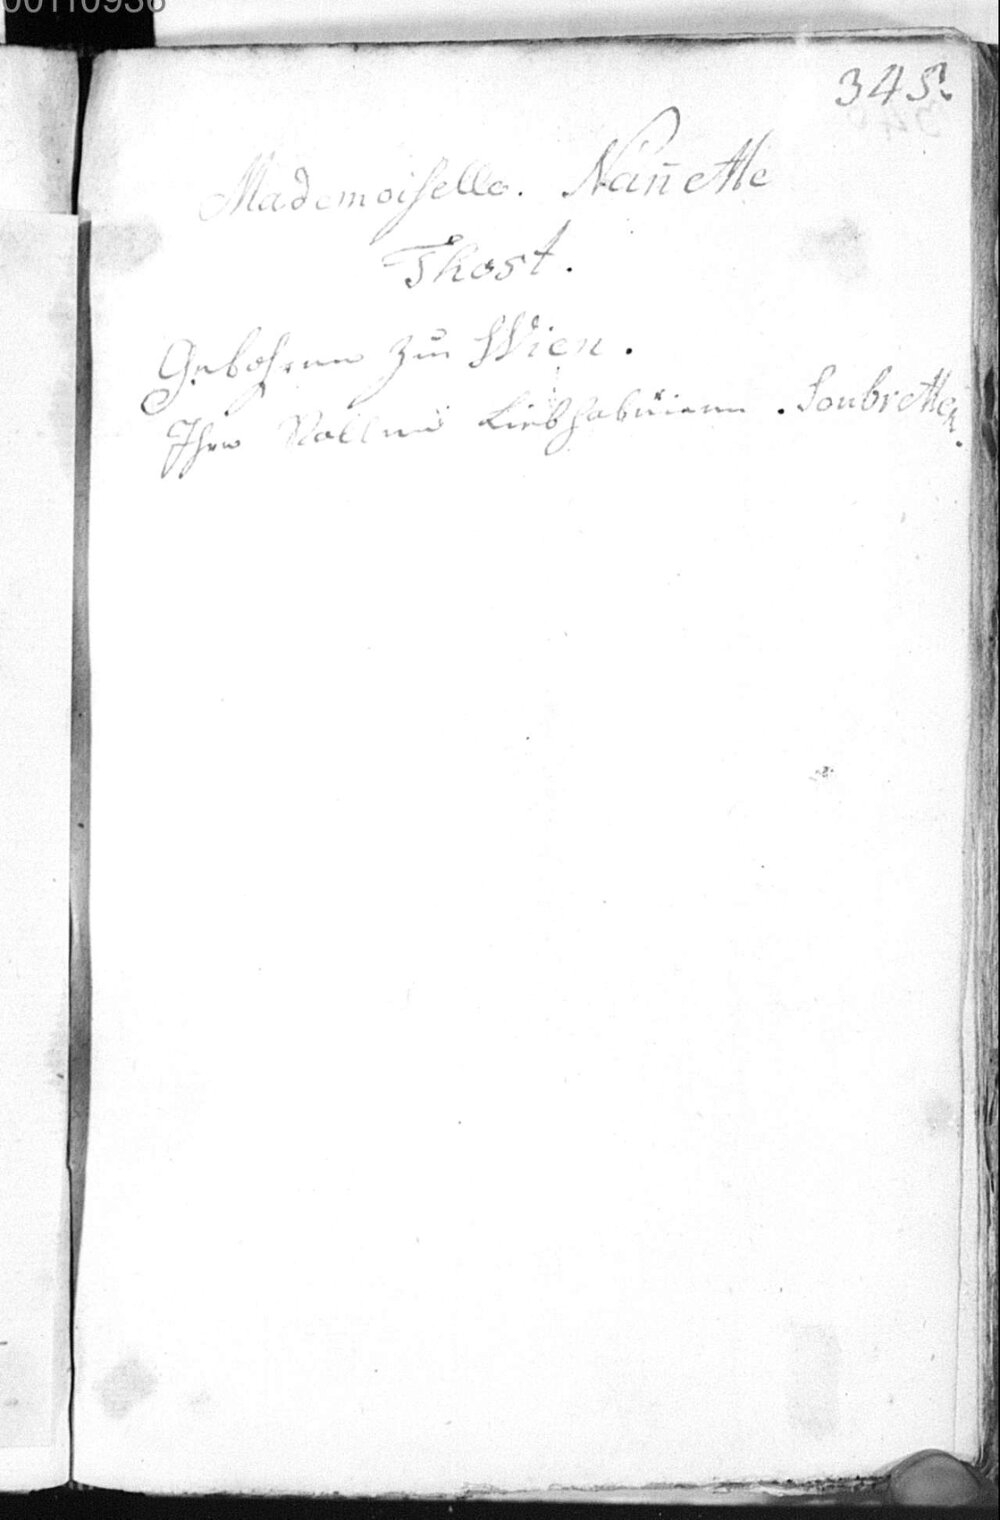 00110936
345.
Mademoiselle. Nan̄ette
Thost.
Gebohren zu Wien.
Ihre Rollen Liebhaberinen. Soubretten.